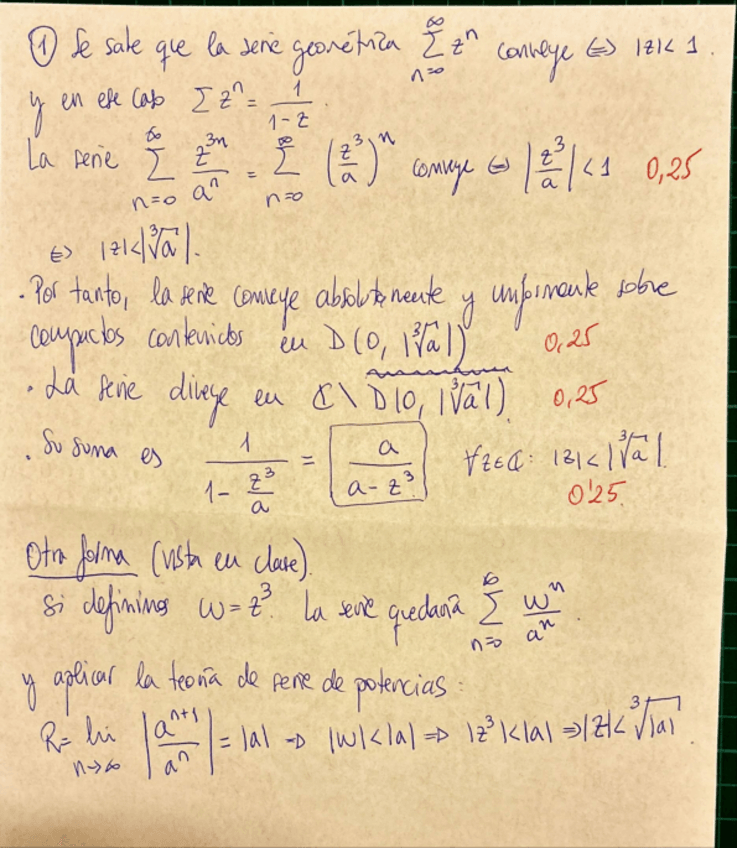 ① Se sabe que la serie geométrica ∑_{n=0}^{∞} z^n converge ⇔ |z| < 1.
y en ese caso ∑ z^n = 1/(1-z).
La serie ∑_{n=0}^{∞} z^{3n}/a^n = ∑_{n=0}^{∞} (z^3/a)^n converge ⇔ |z^3/a| < 1 0,25
⇔ |z| < |∛a|.
· Por tanto, la serie converge absolutamente y uniformemente sobre
compactos contenidos en D(0, |∛a|) 0,25
· La serie diverge en ℂ \ \overline{D(0, |∛a|)} 0,25
· Su suma es 1/(1 - z^3/a) = a/(a - z^3) ∀z∈ℂ: |z| < |∛a|.
0'25.
Otra forma (vista en clase).
Si definimos ω = z^3. La serie quedaría ∑_{n=0}^{∞} ω^n/a^n.
y aplicar la teoría de serie de potencias:
R = lim_{n→∞} |a^{n+1}/a^n| = |a| ⇒ |ω| < |a| ⇒ |z^3| < |a| ⇒ |z| < ∛|a|.